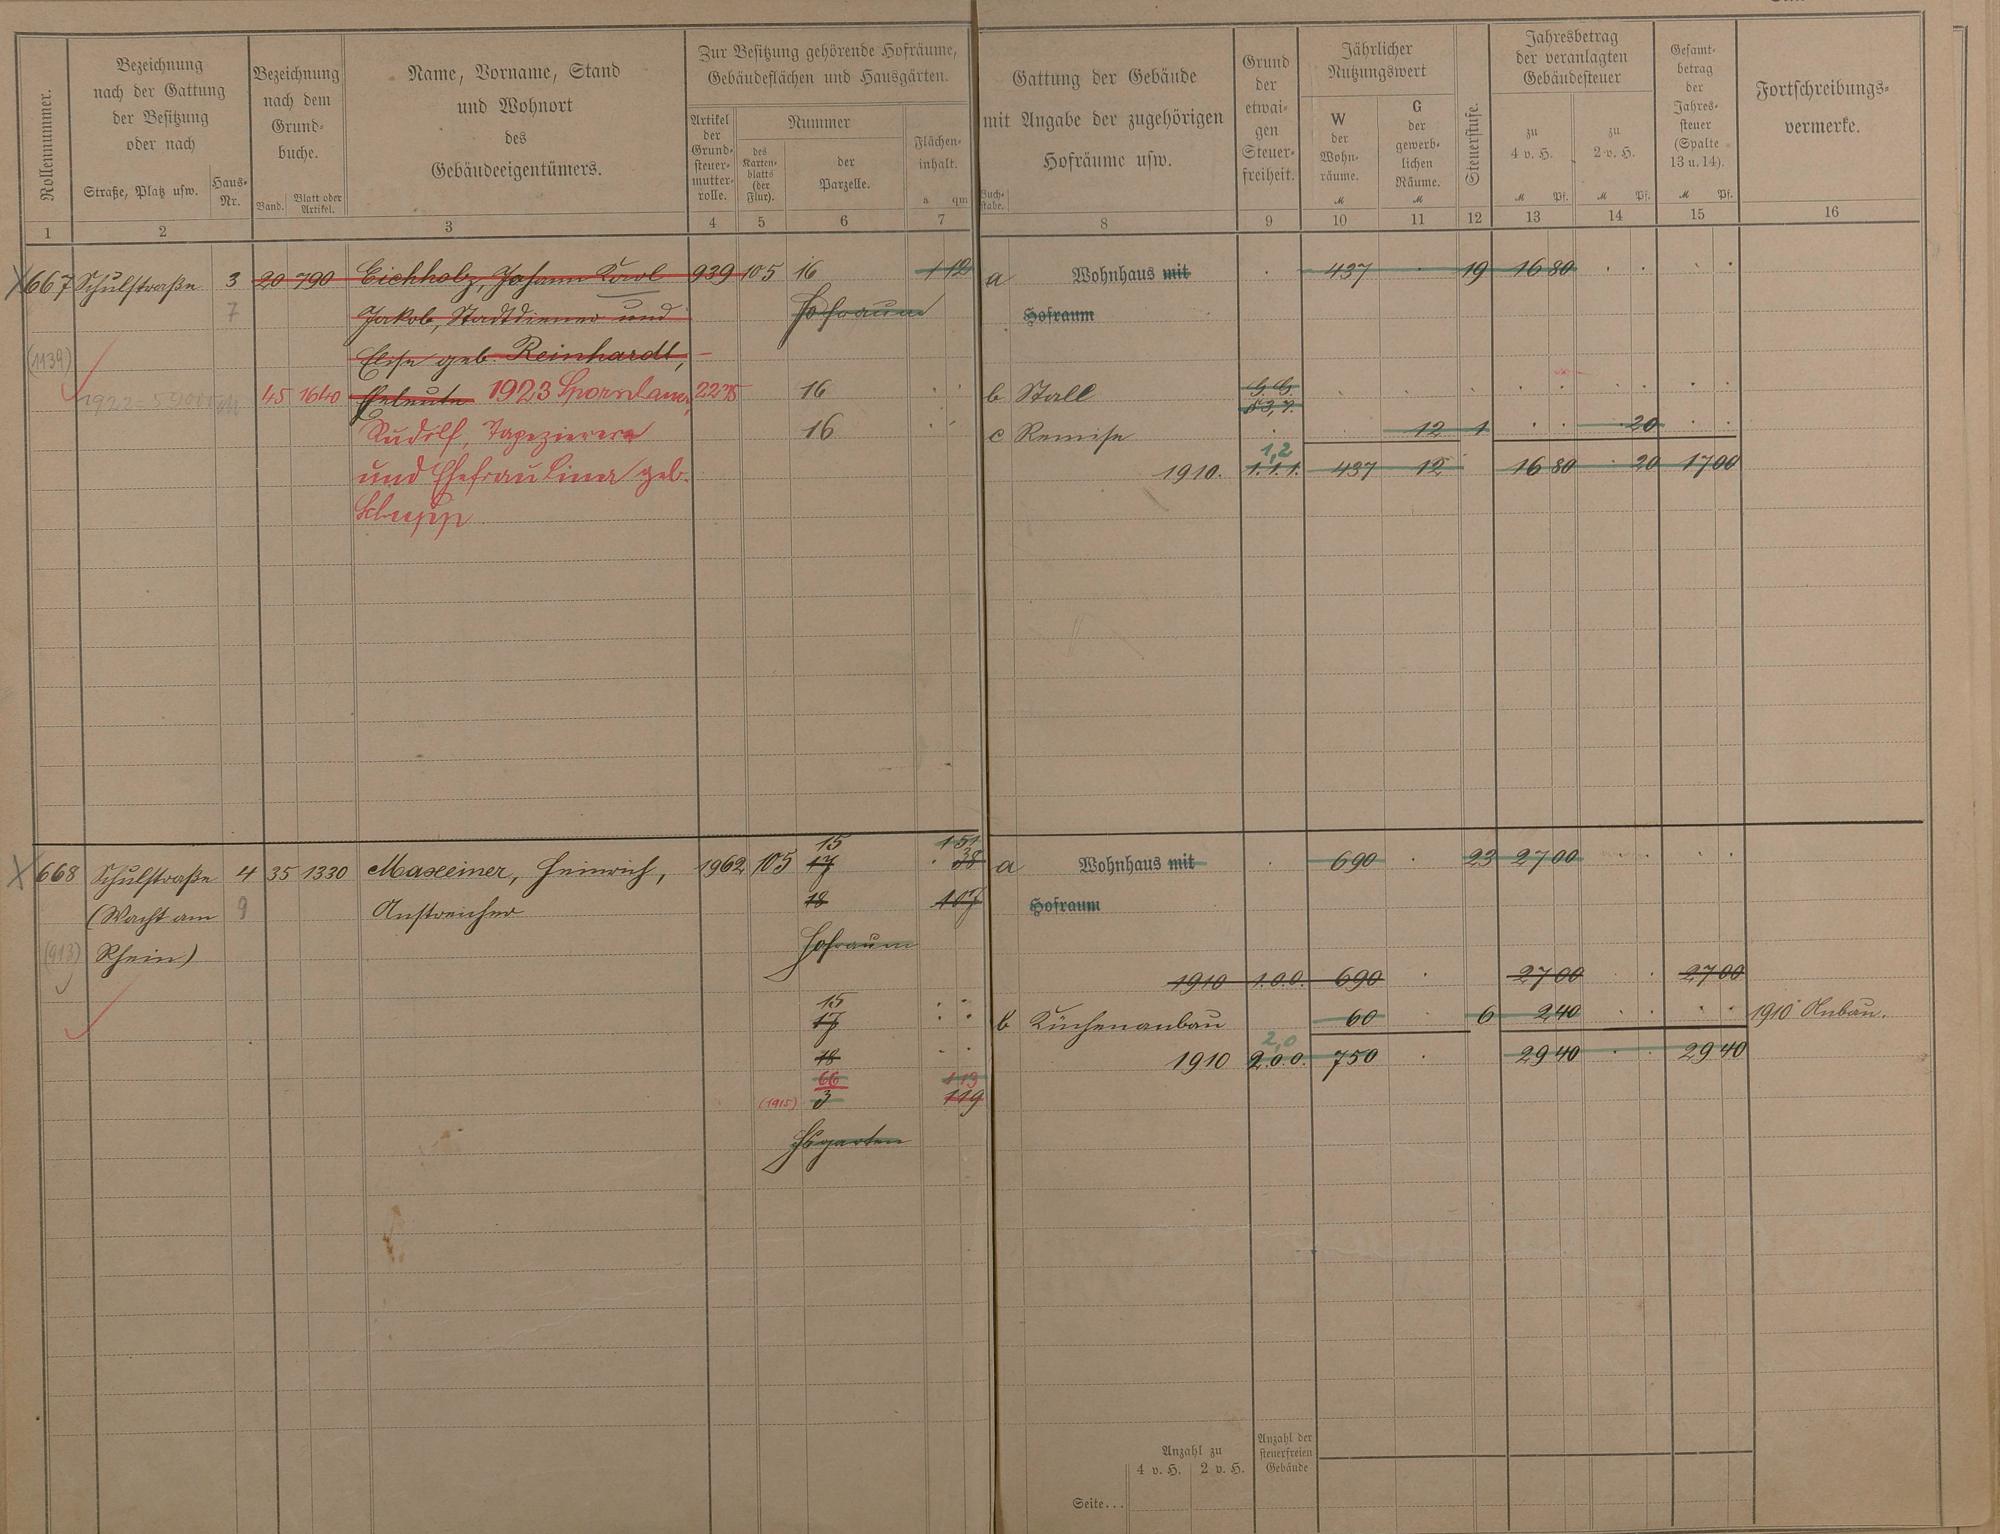 Rollennummer.
Bezeichnung
nach der Gattung
der Besitzung
oder nach
Straße, Platz usw.
Haus-
Nr.
Bezeichnung
nach dem
Grund-
buche.
Band.
Blatt oder
Artikel.
Name, Vorname, Stand
und Wohnort
des
Gebäudeeigentümers.
Zur Besitzung gehörende Hofräume,
Gebäudeflächen und Hausgärten.
Artikel
der
Grund-
steuer-
mutter-
rolle.
Nummer
des
Karten-
blatts
(der
Flur).
der
Parzelle.
Flächen-
inhalt.
a qm
Gattung der Gebäude
mit Angabe der zugehörigen
Hofräume usw.
Buch-
stabe.
Grund
der
etwai-
gen
Steuer-
freiheit.
Jährlicher
Nutzungswert
W
der
Wohn-
räume.
M
G
der
gewerb-
lichen
Räume.
M
Steuerstufe.
Jahresbetrag
der veranlagten
Gebäudesteuer
zu
4 v. H.
M Pf.
zu
2 v. H.
M Pf.
Gesamt-
betrag
der
Jahres-
steuer
(Spalte
13 u. 14).
M Pf.
Fortschreibungs-
vermerke.
1 2 3 4 5 6 7 8 9 10 11 12 13 14 15 16
667 Schulstraße 3 20 790 Eichholz, Johann Karl 939 105 16 1 12 a Wohnhaus mit 437 19 16 80
7 Jakob, Stadtdiener und Hofraum Hofraum
(1139) Elise geb. Reinhardt,
45 1640 Eheleute 1923 2275 16 b Stall G. G.
§ 3, 7.
Rudolf, Tapezierer 16 c Remise 12 1 20
1,2
und Ehefrau Lina geb. 1910. 1.1.1. 437 12 16 80 20 17 00
15 1 51
668 Schulstraße 4 35 1330 Maxeiner, Heinrich, 1962 105 17 38 a Wohnhaus mit 690 23 27 00
(Wacht am 9 Anstreicher 18 1 07 Hofraum
(913) Rhein) Hofraum
1910 1.0.0. 690 27 00 27 00
15
17 b Küchenanbau 60 6 2 40 1910 Anbau.
2,0
18 1910 2.0.0. 750 29 40 29 40
66 1 13
(1915) 3 1 19
Hsgarten
Anzahl zu
4 v. H. 2 v. H.
Anzahl der
steuerfreien
Gebäude
Seite...